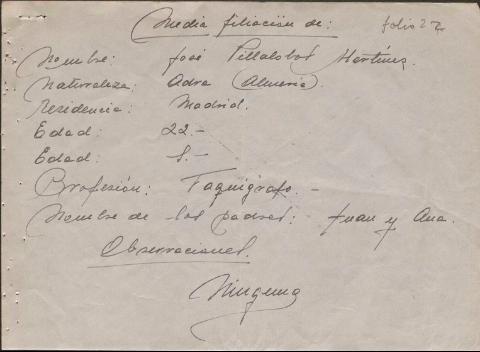 Media filiación de: folio 27
Nombre: José Villalobos Martínez.
Naturaleza: Adra (Almeria).
Residencia: Madrid.
Edad: 22.-
Edad: S.-
Profesión: Taquígrafo.-
Nombre de los padres: Juan y Ana.
Observaciones.
Ninguna